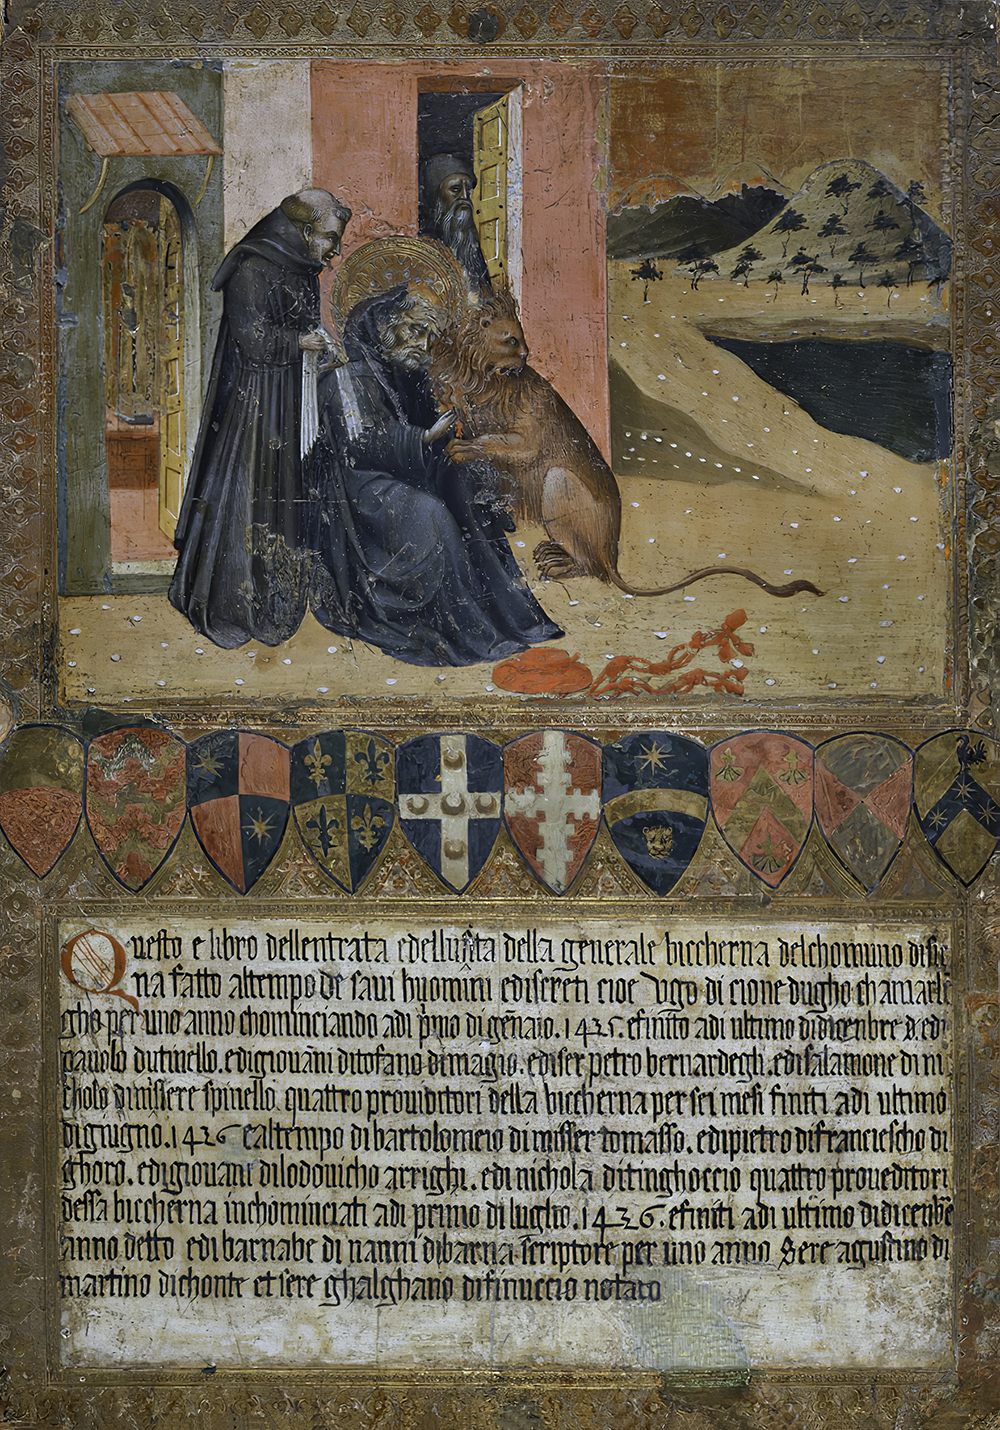 Questo e libro dellentrata e dellusita della generale biccherna del chomuno di sie
na fatto al tempo de savi huomini e discreti cioe Ugo di cione dugho chamarle
gho per uno anno chominciando adi primo di gennaio. 1435. e finito adi ultimo di dicenbre d. e di
pavolo dutinello. e di giovanni di tofano di magio. e di ser petro bernardegli. e di salamone di ni
cholo di missere spinello. quattro providitori della biccherna per sei mesi finiti adi ultimo
di giugno. 1436 e al tempo di bartolomeio di misser tomasso. e di pietro di franciescho di
ghoro. e di giovanni di lodovicho arrighi. e di nichola di tinghoccio quattro proveditori
dessa biccherna inchominciati adi primo di luglio. 1436. e finiti adi ultimo di dicenbre
anno detto e di barnabe di nanni di barna scriptore per uno anno Sere agustino di
martino di chonte et sere ghalghano di finuccio notaro